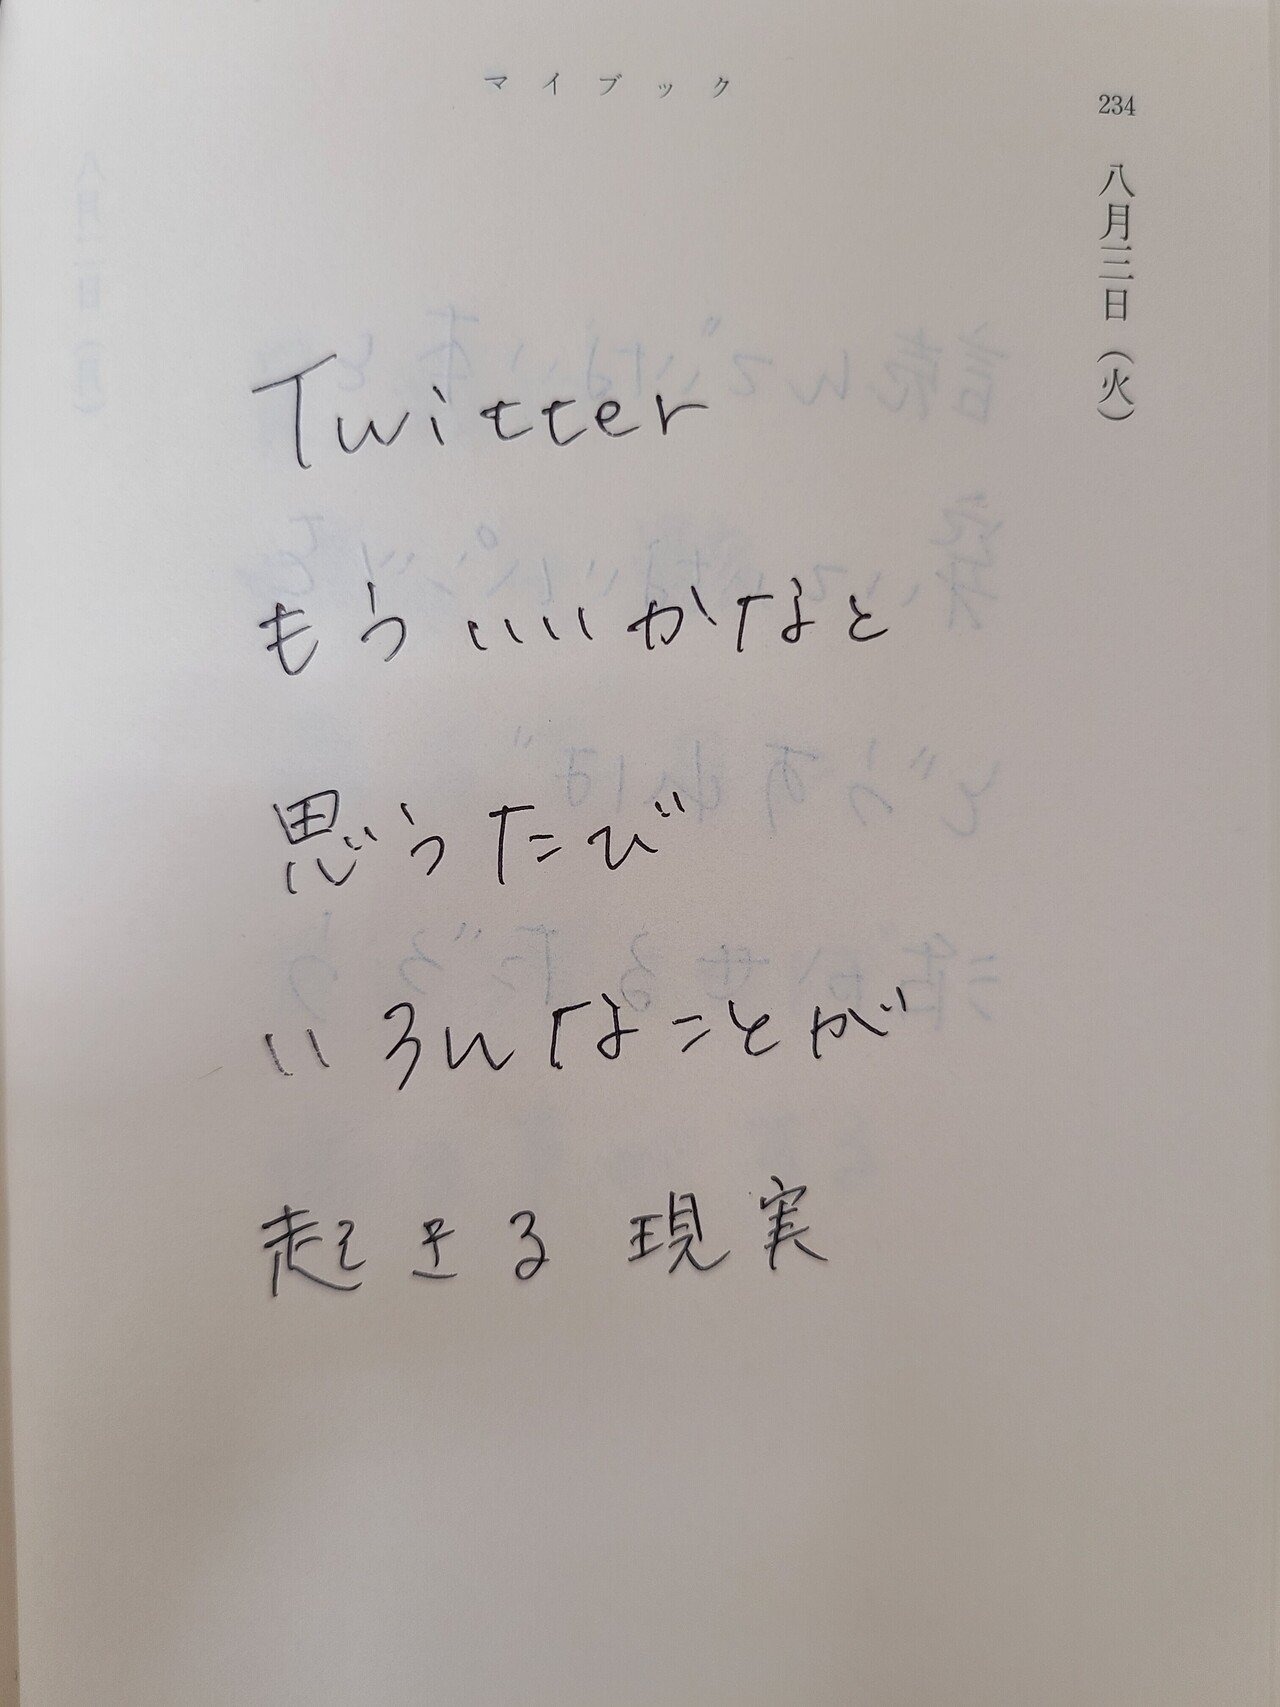 マイブック
234
八月三日（火）
Twitter
もういいかなと
思うたび
いろんなことが
起きる現実